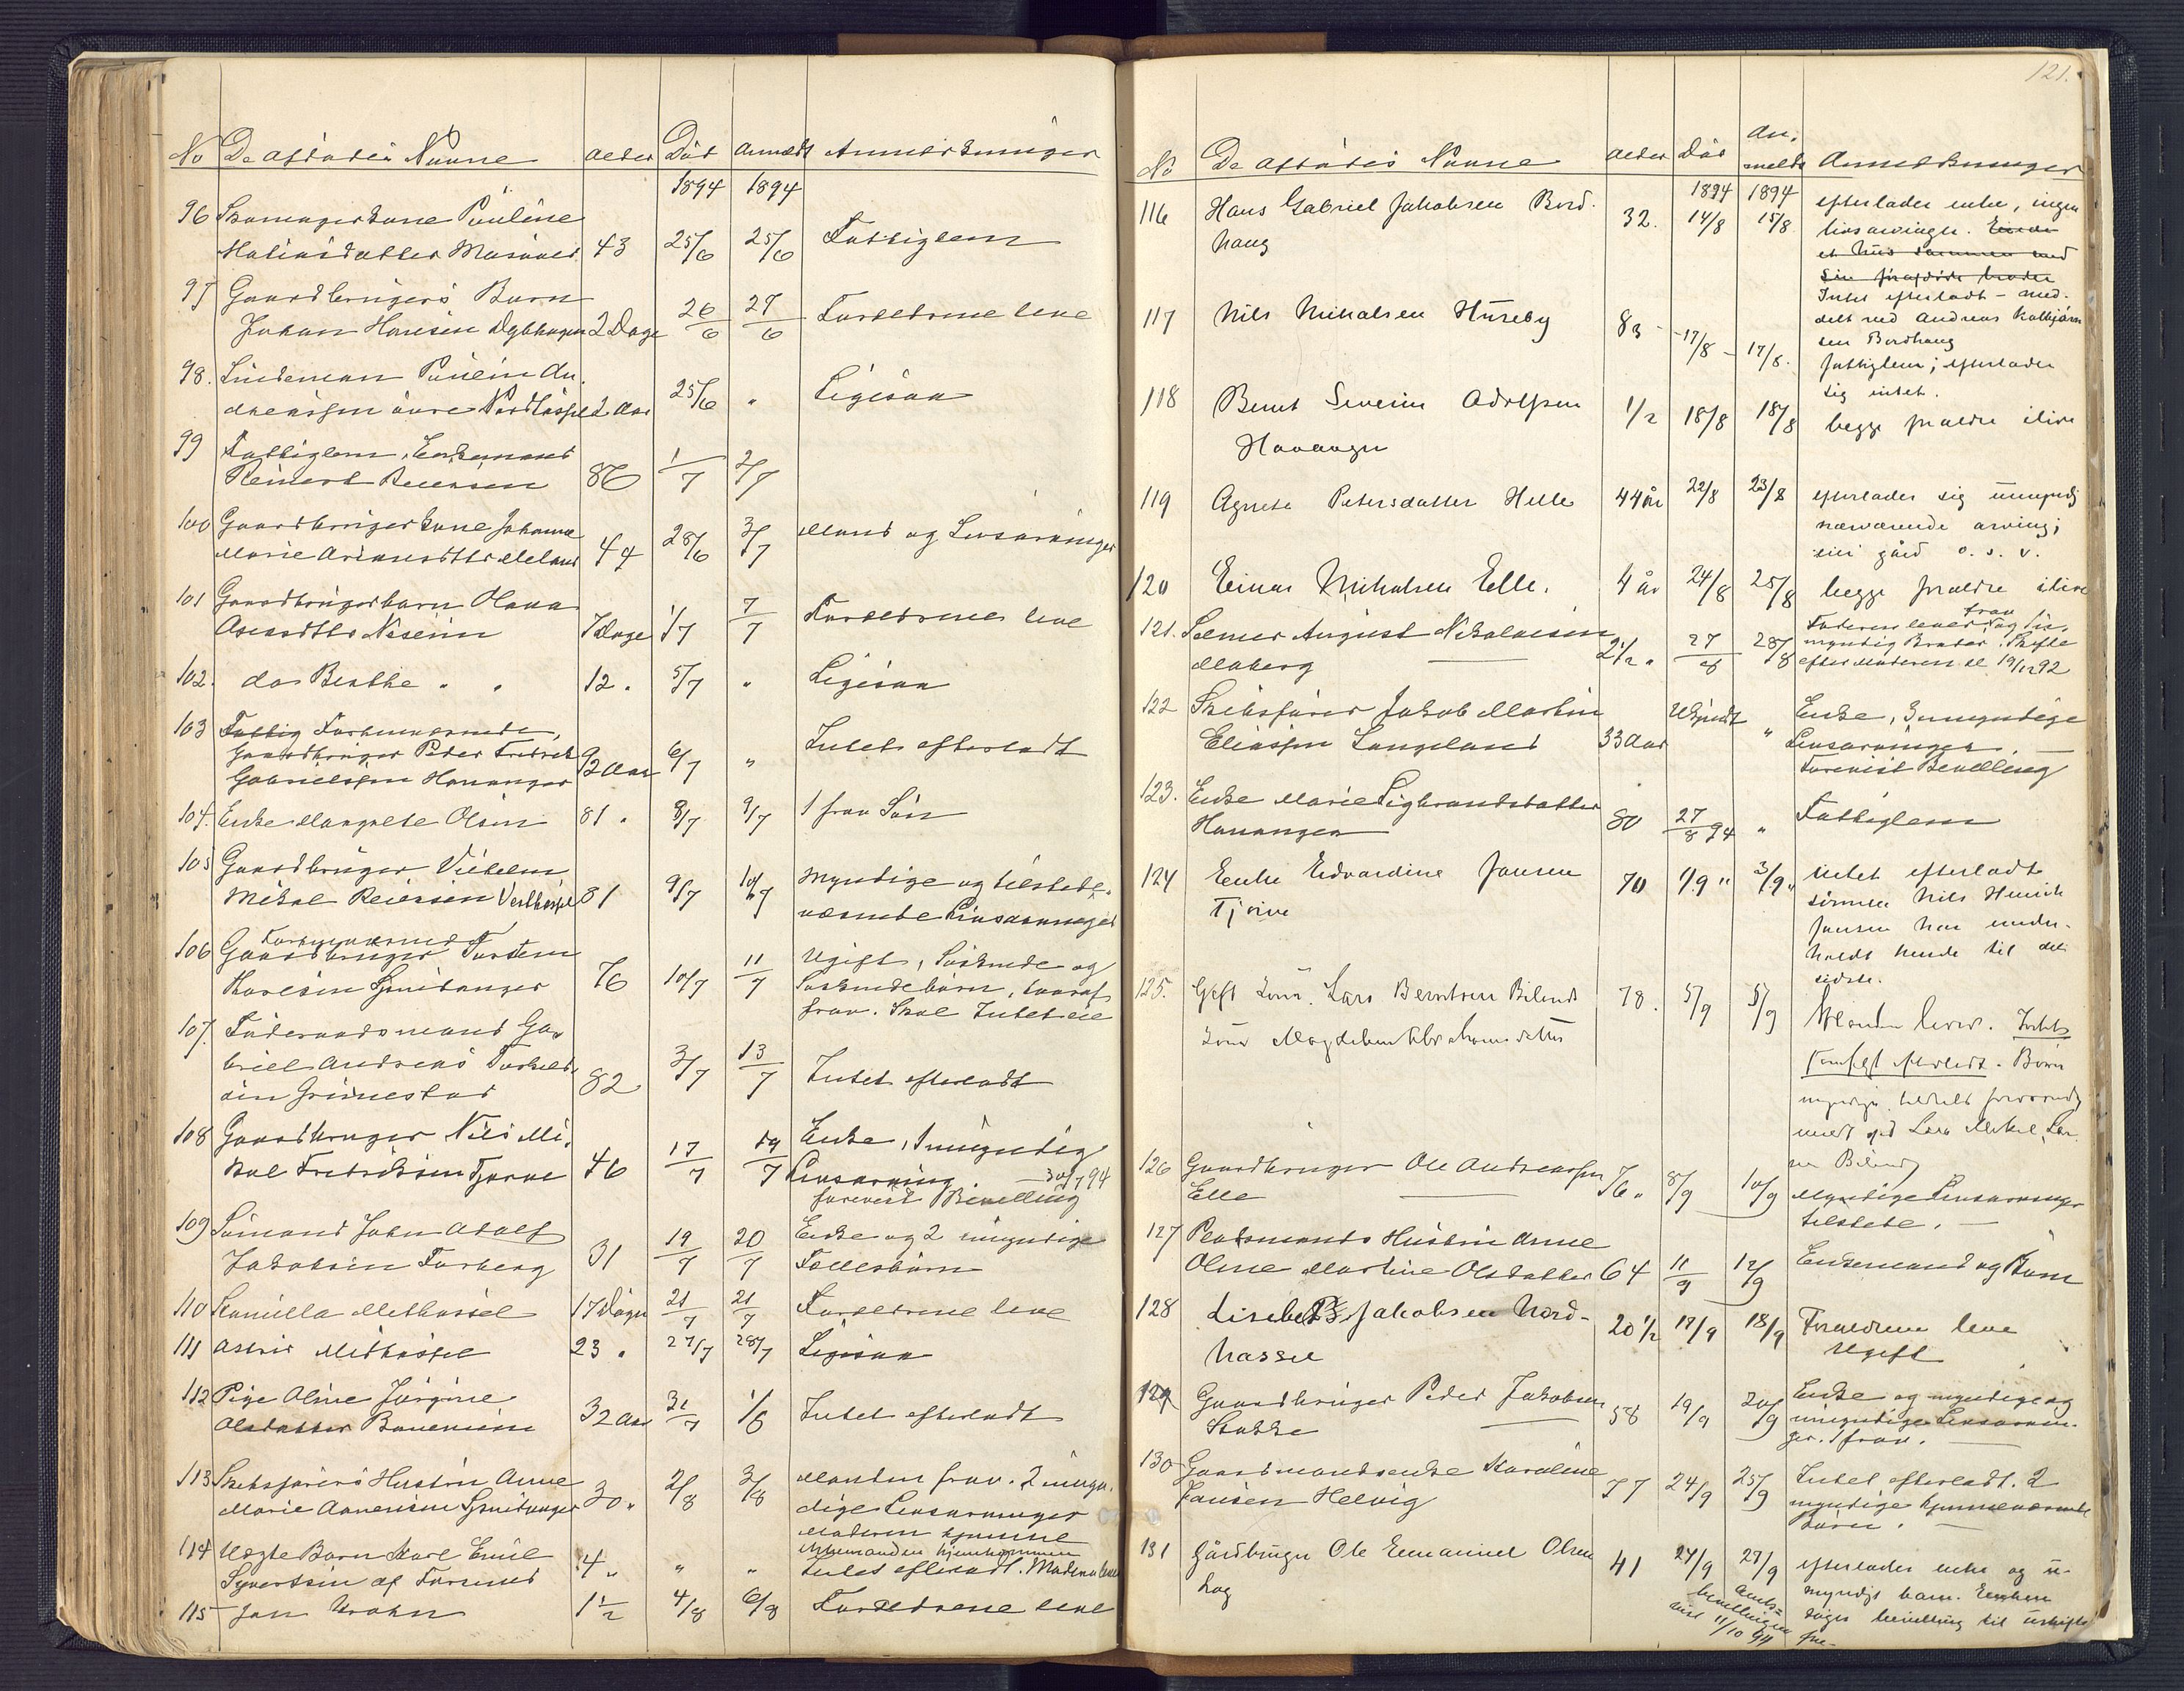 No De Afdødes Navne Alder Død Anmeldt Anmerkninger
1894 1894
96 Skomagerkone Pauline
Mathiasdatter 43 25/6 25/6 Fattiglem
97 Gaardbrugers Barn
Johan Hansen Dybhagen 2 Dage 26/6 27/6 Forældrene leve
98. Lindeman An-
dreassen øvre Nordhassel 2 Aar 25/6 " Ligesaa
99 Fattiglem, Enkemand
Reinert Reiersen 86 1/7 2/7
100 Gaardbrugerkone Johanne
Marie Meland 44 28/6 3/7 Mand og Livsarvinger
101 Gaardbrugerbarn Olava
7 Dage 1/7 7/7 Forældrene leve
102. do Berthe " " 12 " 5/7 " Ligesaa
103 Fattig Forhenværende
Gaardbruger Peder Fredrik
Gabrielssen Hananger 92 Aar 6/7 " Intet efterladt
104. Enke Margrete Olsen 81 " 8/7 9/7 1 frav Søn
105 Gaardbruger Vilhelm
Mikal Reiersen Vesthassel 81 9/7 10/7 Myndige og tilstede-
værende Livsarvinger
Forhenværende
106 Gaardbruger Torsten
76 10/7 11/7 Ugift, Søskende og
Søskendebørn, hvoraf
frav. Skal Intet eie
107. Føderaadsmand Ga-
briel Andreas Torkels-
en Grimestad 82 3/7 13/7 Intet efterladt
108 Gaardbruger Nils Mi-
kal Fredriksen Tjørve 46 17/7 19/7 Enke, 1 umyndig
Livsarving 30/7 94
forevist Bevilling
109 Sømand John Adolf
Jakobsen Farberg 31 19/7 20/7 Enke og 2 umyndige
Fællesbørn
110 Kamilla Midhassel 17 Dage 21/7 21/7 Forældrene leve
111 Astrid Midhassel 23 " 27/7 28/7 Ligesaa
112 Pige Oline Jørgine
Olsdatter 32 Aar 31/7 1/8 Intet efterladt
113 Skibsførers Hustru Anne
Marie Aanensen 30 " 2/8 3/8 Manden frav. 2 umyn-
dige Livsarvinger
Moderen hjemme
Ægtemanden hjemkommen
114 Uægte Barn Karl Emil
Syvertsen af Farsund 4 " " " Intet efterladt. Moderen lever
115 Jon Krohn 1 1/2 4/8 6/8 Forældrene leve
121.
No De Afdødes Navne Alder Død An-
meldt Anmerkninger
1894 1894
116 Hans Gabriel Jakobsen Bord-
haug 32. 14/8 15/8 efterlader enke, ingen
livsarvinger.
et hus sammen med
sin
Intet efterladt - med-
delt ved Andreas Kolbjørn
sen Bordhaug
117 Nils Mikalsen Huseby 83 17/8 17/8. fattiglem; efterlader
sig intet.
118 Bernt Severin Adolfsen
Hananger 1/2 18/8 18/8 begge forældre ilive
119 Agnete Petersdatter Helle 44 år 22/8 23/8 efterlader sig umyndig
nærværende arving;
eier gård o. s. v.
120 Einar Mikalsen Elle. 4 år 24/8 25/8 begge forældre ilive
121. Selmer August Nikolaisen
Aaberg 2 1/2 " 27/8 28/8 Faderen lever og frav
myndig Broder. Skifte
efter Moderen 19/12 92
122 Skibsfører Jakob Martin
Eliassen Langeland 33 Aar Ukjendt " Enke, 3 umyndige
Livsarvinger.
Forevist Bevilling
123. Enke Marie Sigbrandsdatter
Hananger 80 27/8 94 " Fattiglem
124 Enke Edvardine Jansen
Tjørve 70 1/9 " 3/9 " intet efterladt
sønnen Nils Henrik
Jansen har under-
holdt hende til det
sidste.
125. Gift Lars Berntsen
78. 5/9 5/9 Manden lever. Intet
efterladt. Børn
126 Gaardbruger Ole Andreassen
Elle 76 " 8/9 10/9 Myndige Livsarvinger
tilstede.
127 Pladsmands Hustru Anne
Oline Martine Olsdatter 64 11/9 12/9 Enkemand og Børn
128 Lisebet Jakobsen Nord-
hassel 20 1/2 17/9 18/9 Forældrene leve
Ugift
129 Gaardbruger Peder Jakobsen
Stokke 58 19/9 20/9 Enke og myndige og
umyndige Livsarvin-
ger. 1 frav.
130 Gaardmandsenke Karoline
Jansen Helvig 77 24/9 25/9 Intet efterladt. 2
myndige hjemmeværende
Børn.
131 Gårdbruger Ole Emanuel Olsen
Hag 41 27/9 29/9 efterlader enke og u-
myndigt barn. Enken
søger bevilling til uskifte
Amts-
bevillingen fre-
vist 11/10 94